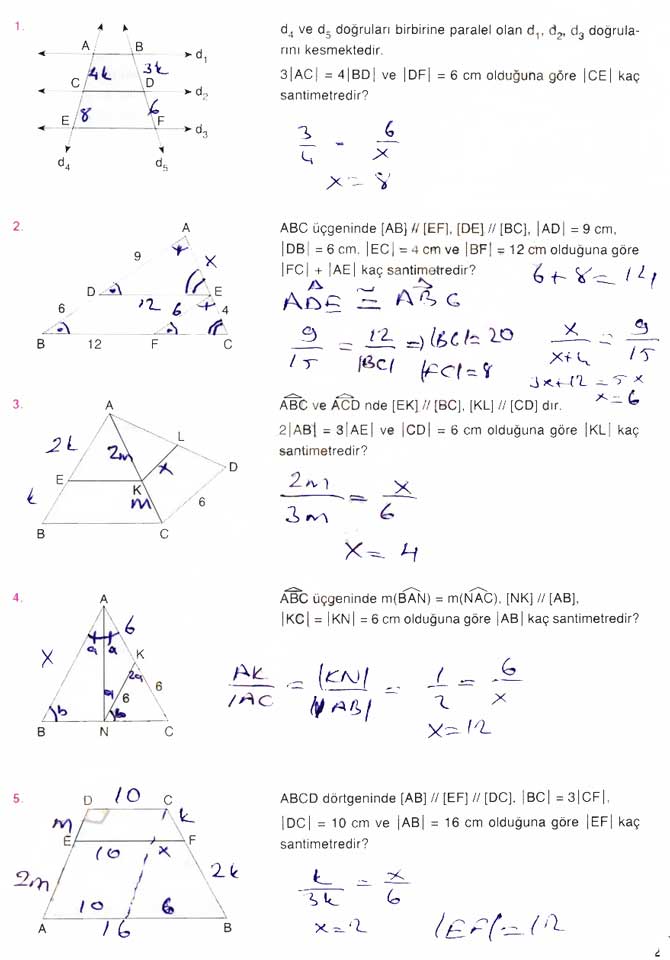 1.
A
B
d₁
4k
3k
C
D
d₂
8
6
E
F
d₃
d₄
d₅
d₄ ve d₅ doğruları birbirine paralel olan d₁, d₂, d₃ doğrula-
rını kesmektedir.
3|AC| = 4|BD| ve |DF| = 6 cm olduğuna göre |CE| kaç
santimetredir?
3/4 = 6/x
x = 8
2.
A
9
x
D
12
E
6
6
4
B
12
F
C
ABC üçgeninde [AB] // [EF], [DE] // [BC], |AD| = 9 cm,
|DB| = 6 cm, |EC| = 4 cm ve |BF| = 12 cm olduğuna göre
|FC| + |AE| kaç santimetredir?
6+8=14
ADE ≅ ABC
9/15 = 12/|BC| ⇒ |BC| = 20
|FC| = 8
x/x+4 = 9/15
3x+12=5x
x=6
3.
A
2k
2m
L
x
D
E
K
6
k
m
B
C
ABC ve ACD nde [EK] // [BC], [KL] // [CD] dır.
2|AB| = 3|AE| ve |CD| = 6 cm olduğuna göre |KL| kaç
santimetredir?
2m/3m = x/6
x = 4
4.
A
6
a
a
x
K
2a
a
6
6
b
b
B
N
C
ABC üçgeninde m(BAN) = m(NAC), [NK] // [AB],
|KC| = |KN| = 6 cm olduğuna göre |AB| kaç santimetredir?
AK/|AC = |KN|/|AB| = 1/2 = 6/x
x=12
5.
D
10
C
m
k
E
10
x
F
2m
2k
10
6
A
16
B
ABCD dörtgeninde [AB] // [EF] // [DC], |BC| = 3|CF|,
|DC| = 10 cm ve |AB| = 16 cm olduğuna göre |EF| kaç
santimetredir?
k/3k = x/6
x=2
|EF|=12